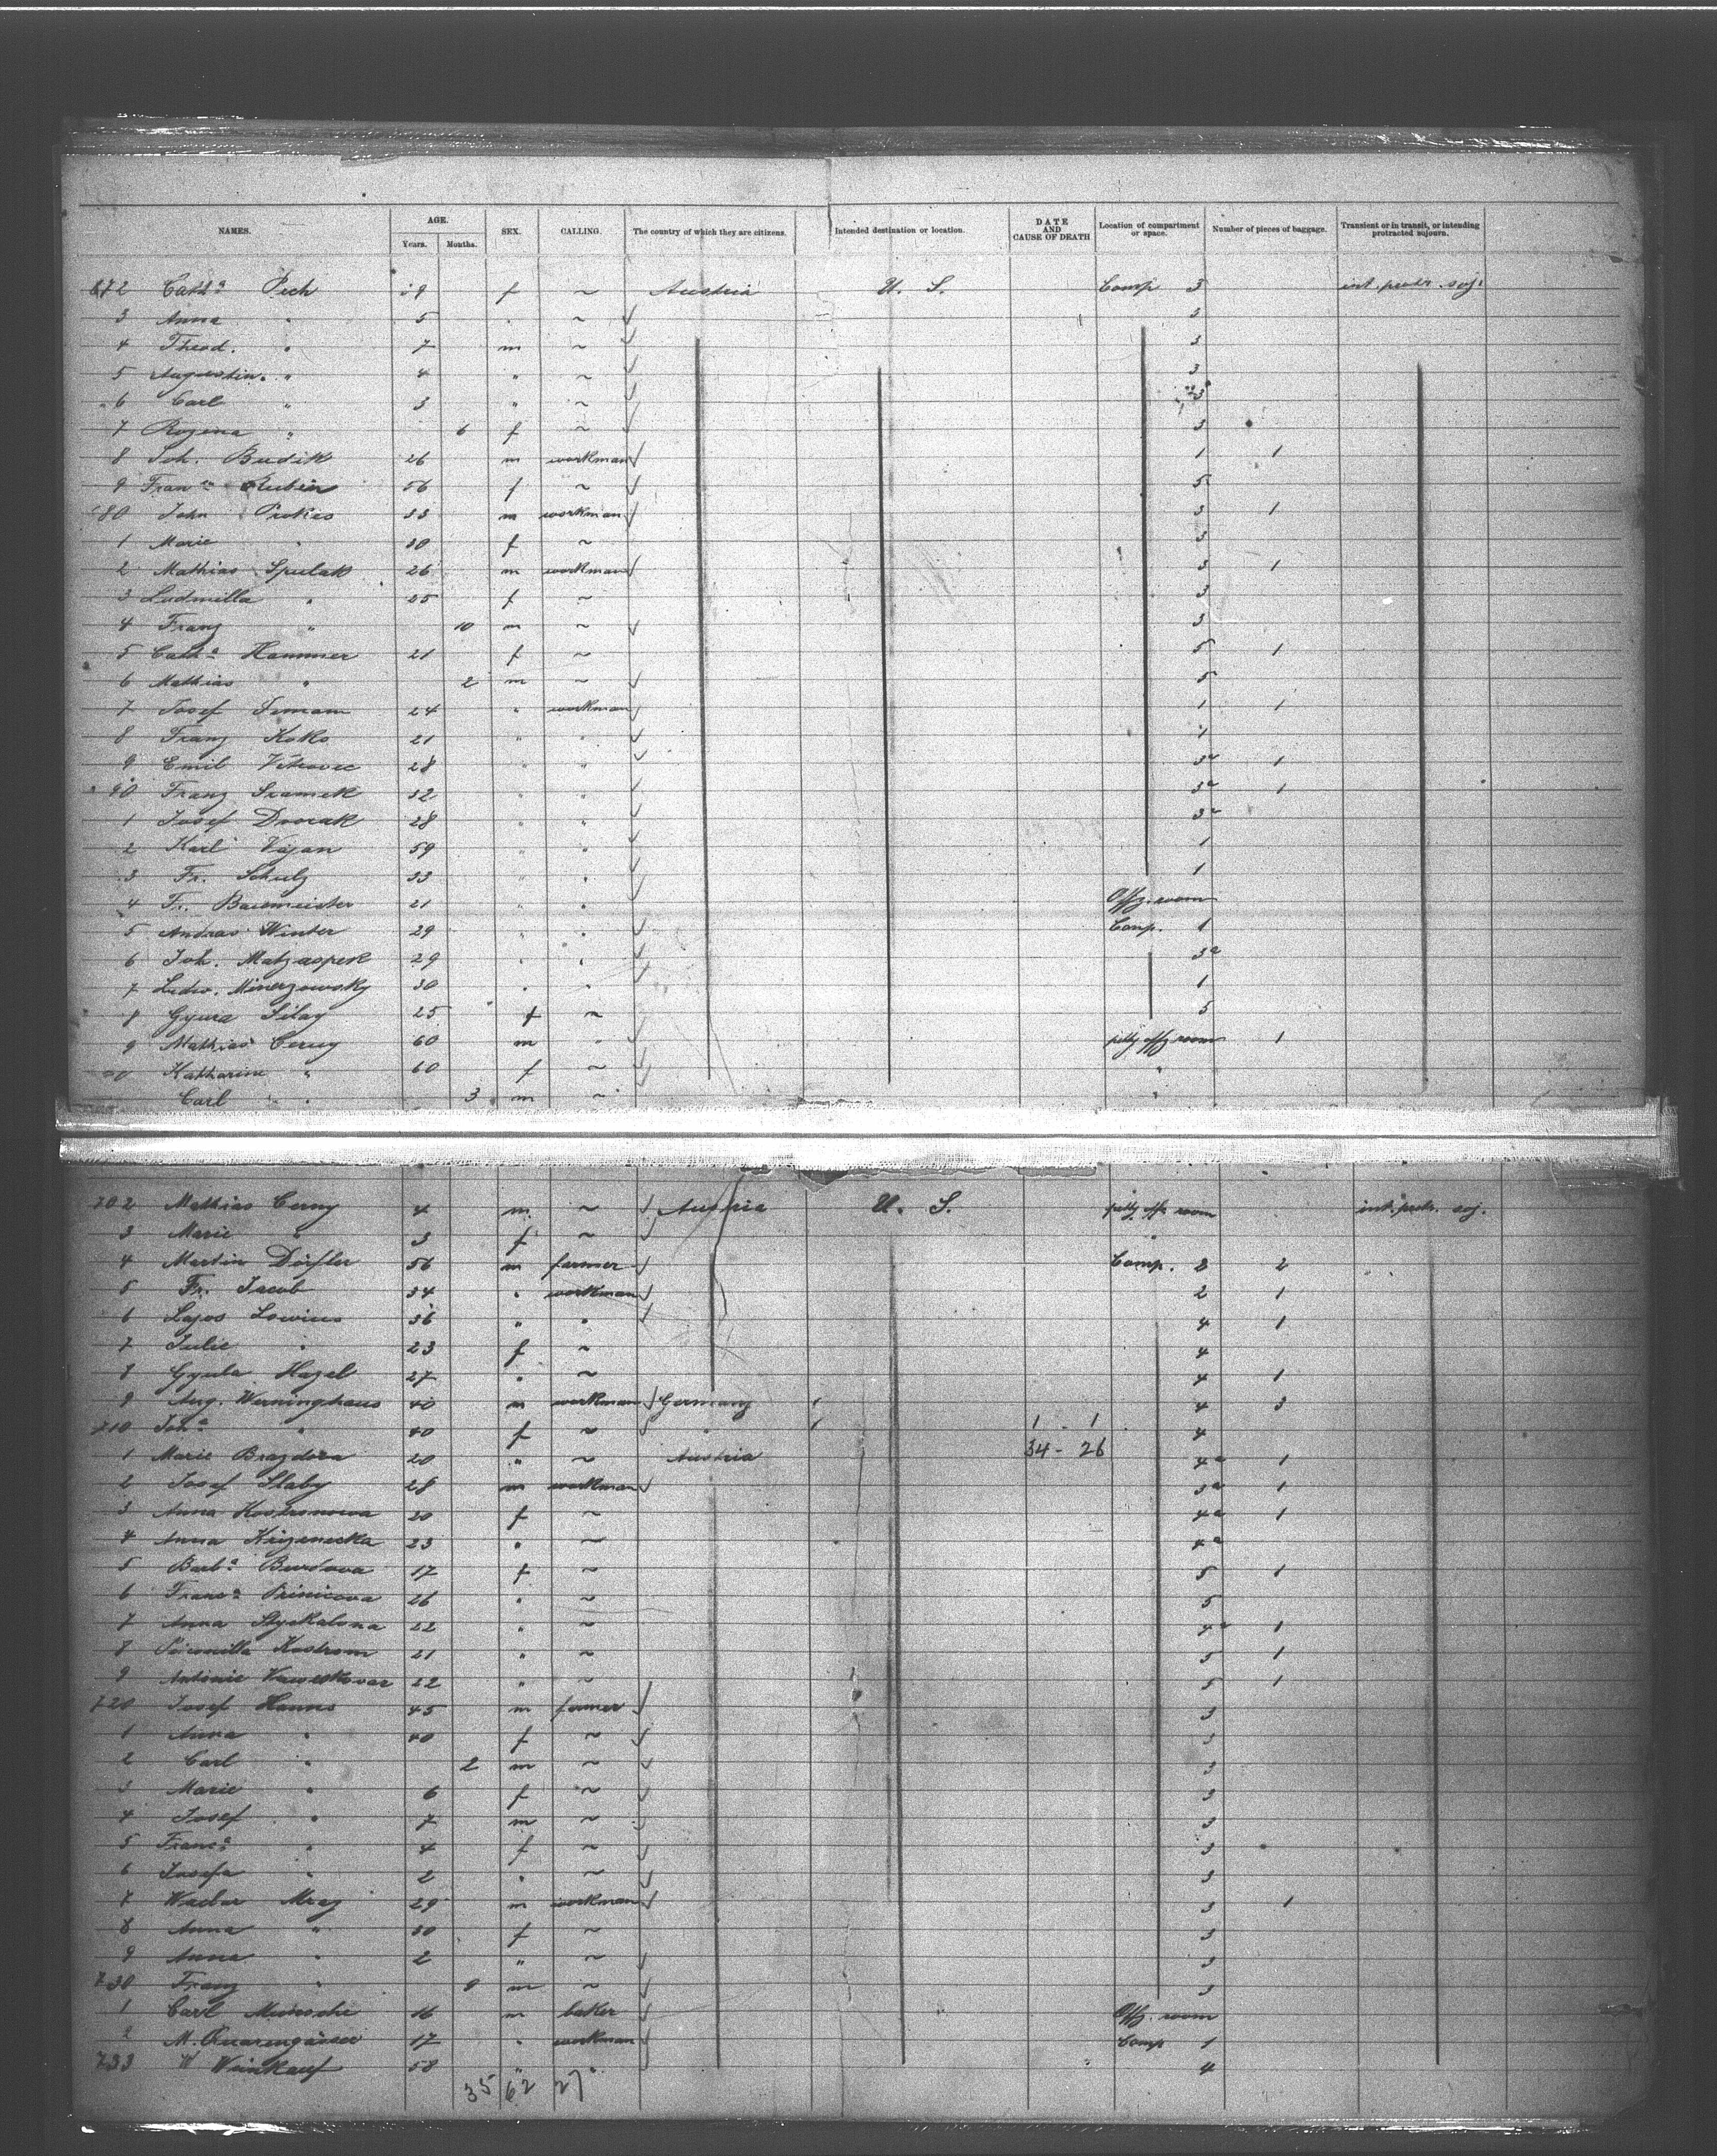 NAMES. AGE. Years. Months. SEX. CALLING. The country of which they are citizens. Intended destination or location. DATE AND CAUSE OF DEATH Location of compartment or space. Number of pieces of baggage. Transient or in transit, or intending protracted sojourn.
672 Cath.a Pech f ~ Austria U. S. Comp 3 int. protr. soj.
3 Anna " 5 " ~ 3
4 Theod. " 7 m ~ 3
5 Augustin. " 4 " ~ 3
6 Carl " 3 " ~
7 Rozina " 6 f ~ 3
8 Joh. Budik 26 m workman 1 1
9 56 f ~ 5
80 John Prokes 33 m workman 3 1
1 Marie " 30 f ~ 3
2 Mathias Spulak 26 m workman 3 1
3 Ludmilla " 25 f ~ 3
4 Franz " 10 m ~ 3
5 Cath.a Hammer 21 f ~ 5 1
6 Mathias " 2 m ~ 5
7 Josef 24 " workman 1 1
8 Franz Koko 21 " " 1
9 Emil 28 " " 3a 1
90 Franz Sramek 32 " " 3a 1
1 Josef Dvorak 28 " " 3a
2 Karl Vajan 59 " " 1
3 Fr. Schulz 33 " " 1
4 Fr. Baumeister 21 " " Offz. room
5 Andras Winter 29 " " Comp. 1
6 Joh. Matzaspek 29 " " 3a
7 Ludw. 30 " " 1
8 Gyura 25 f ~ 5
9 Mathias Cerny 60 m " petty offz room 1
Katharine " 60 f ~ "
Carl " 3 m ~ "
702 Mathias Cerny 4 m. ~ Austria U. S. petty offz room int. protr. soj.
3 Marie " 3 f ~ "
4 Martin Dörfler 56 m farmer Comp. 2 2
5 Fr. Jacob 34 " workman 2 1
6 Lajos 36 " " 4 1
7 Julie " 23 f ~ 4
8 Gyula Hazel 27 " ~ 4 1
9 Aug. Werninghaus 40 m workman Germany 4 3
710 Joh.a " 40 f ~ " 1 - 1 4
34 - 26
1 Marie 20 " ~ Austria 4a 1
2 Josef Slaby 28 m workman 3a 1
3 Anna 20 f ~ 4a 1
4 Anna 23 " ~ 4a
5 Barb.a 17 f ~ 5 1
6 Franc.a 26 " ~ 5
7 Anna 22 " ~ 4a 1
8 21 " ~ 5 1
9 Antonie 22 " ~ 5 1
720 Josef Hanns 45 m farmer 3
1 Anna " 40 f ~ 3
2 Carl " 2 m ~ 3
3 Marie " 6 f ~ 3
4 Josef " 7 m ~ 3
5 Franc.a " 4 f ~ 3
6 Josefa " 2 " ~ 3
7 Mraz 29 m workman 3 1
8 Anna " 30 f ~ 3
9 Anna " 2 " ~ 3
730 Franz " 9 m ~ 3
1 Carl 16 m baker Offz. room
2 M. 17 " workman Comp 1
733 W Weinkauf 58 " " 4
35 62 27